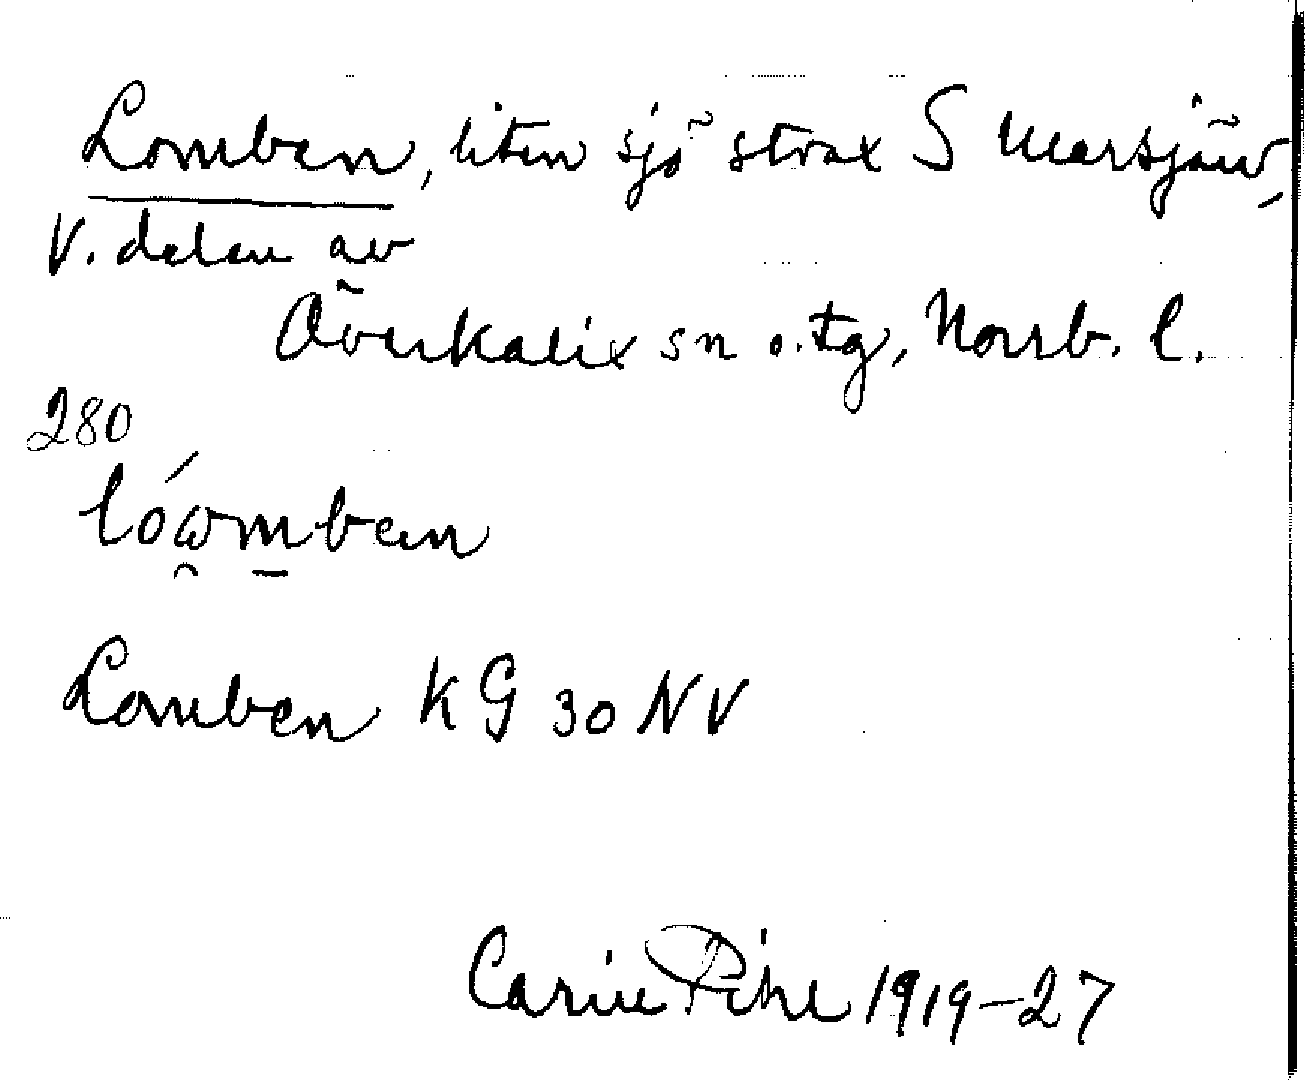 Lomben, liten sjö strax S Marsjärv,
V. delen av
Överkalix sn o. tg, Norrb. l.
280
lóωmben
Lomben KG 30 NV
Carin Pihl 1919-27